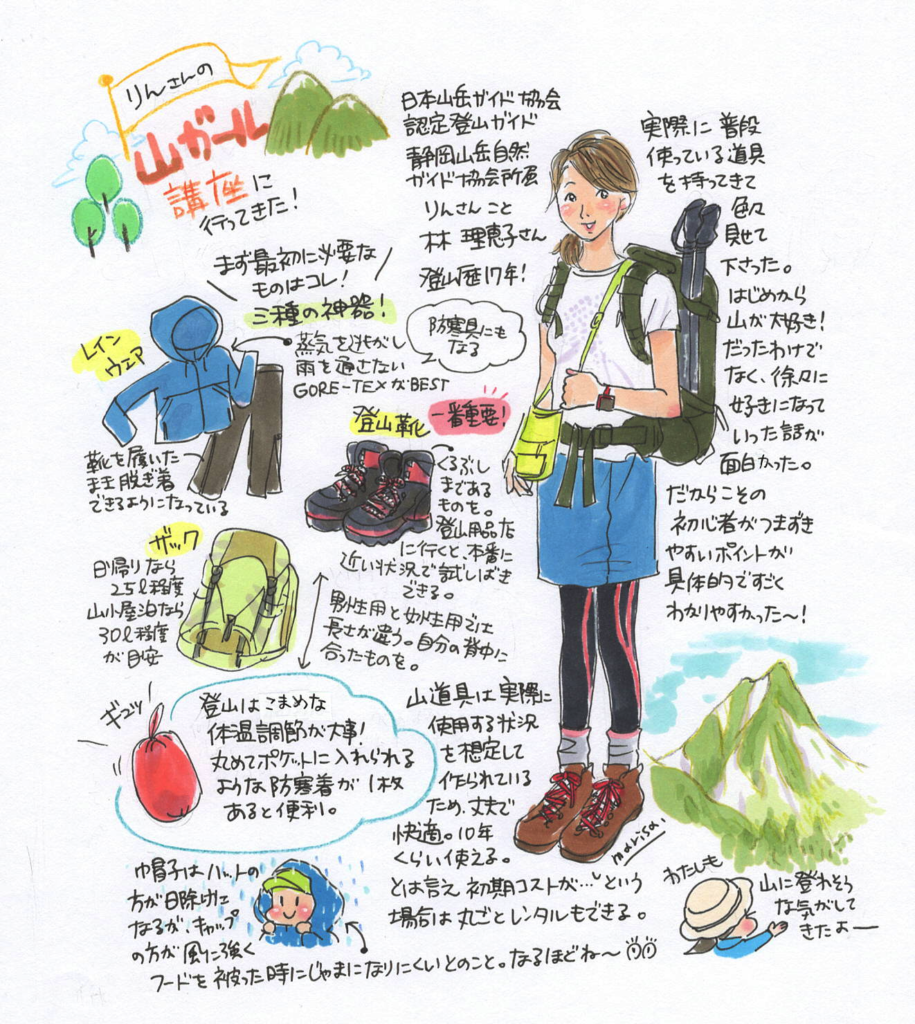 りんさんの
山ガール
講座に
行ってきた!
日本山岳ガイド協会
認定登山ガイド
静岡山岳自然
ガイド協会所属
りんさんこと
林 理恵子さん
登山歴17年!
実際に普段
使っている道具
を持ってきて
色々
見せて
下さった。
はじめから
山が大好き!
だったわけで
なく、徐々に
好きになって
いった話が
面白かった。
だからことの
初心者がつまずき
やすいポイントが
具体的ですごく
わかりやすかった〜!
まず最初に必要な
ものはコレ!
三種の神器!
レイン
ウェア
蒸気を逃がし
雨を通さない
GORE-TEXがBEST
防寒具にも
なる
靴を履いた
まま脱ぎ着
できるようになっている
登山靴
一番重要!
くるぶし
まである
ものを。
登山用品店
に行くと、本番に
近い状況で試しばき
できる。
ザック
日帰りなら
25ℓ程度
山小屋泊なら
30ℓ程度
が目安
男性用と女性用では
長さが違う。自分の背中に
合ったものを。
ギュッ
登山はこまめな
体温調節が大事!
丸めてポケットに入れられる
ような防寒着が1枚
あると便利。
山道具は実際に
使用する状況
を想定して
作られている
ため、丈夫で
快適。10年
くらい使える。
とは言え初期コストが…という
場合は丸ごとレンタルもできる。
marisa.
巾冒子はハットの
方が日除けに
なるが、キャップ
の方が風に強く
フードを被った時にじゃまになりにくいとのこと。なるほどね〜
わたしも
山に登れそう
な気がして
きたよー